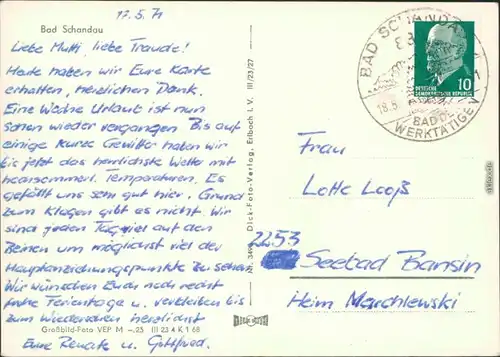 Bad Schandau
17.5.71
Liebe Mutti, liebe Traude!
Heute haben wir Eure Karte
erhalten, herzlichen Dank.
Eine Woche Urlaub ist nun
schon wieder vergangen Bis auf
einige kurze Gewitter haben wir
bis jetzt das herrlichste Wetter mit
hochsommerl. Temperaturen. Es
gefällt uns sehr gut hier. Grund
zum Klagen gibt es nicht. Wir
sind jeden Tag viel auf den
Beinen um möglichst viel der
Hauptanziehungspunkte zu sehen
Wir wünschen Euch noch recht
frohe Ferientage u. verbleiben bis
zum Wiedersehen herzlichst
Großbild-Foto VEP M –.25 III 23 4 K 1 68
Eure Renate u. Gottfried.
Dick-Foto-Verlag, Erlbach i. V. III/23/27
BAD SCHANDAU
18.5.
BAD DER
WERKTÄTIGEN
10
DEUTSCHE
DEMOKRATISCHE REPUBLIK
Frau
Lotte Looß
2253
Seebad Bansin
Heim Marchlewski